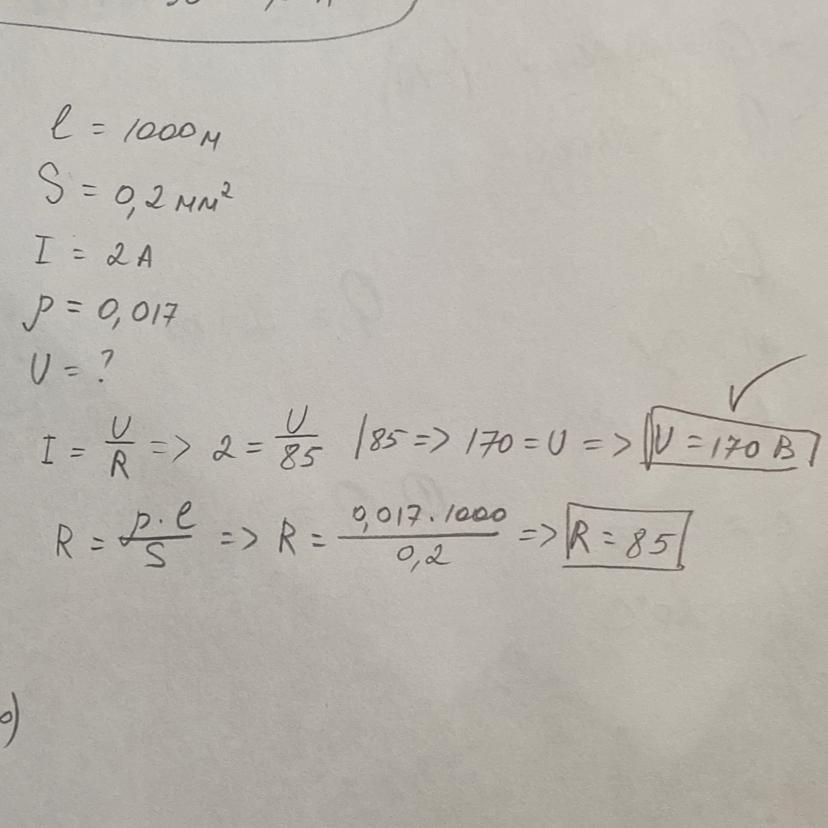 l = 1000м
S = 0,2 мм²
I = 2А
ρ = 0,017
U = ?
I = U/R => 2 = U/85 /85 => 170 = U => U = 170 В ✓
R = ρ·l/S => R = 0,017·1000/0,2 => R = 85